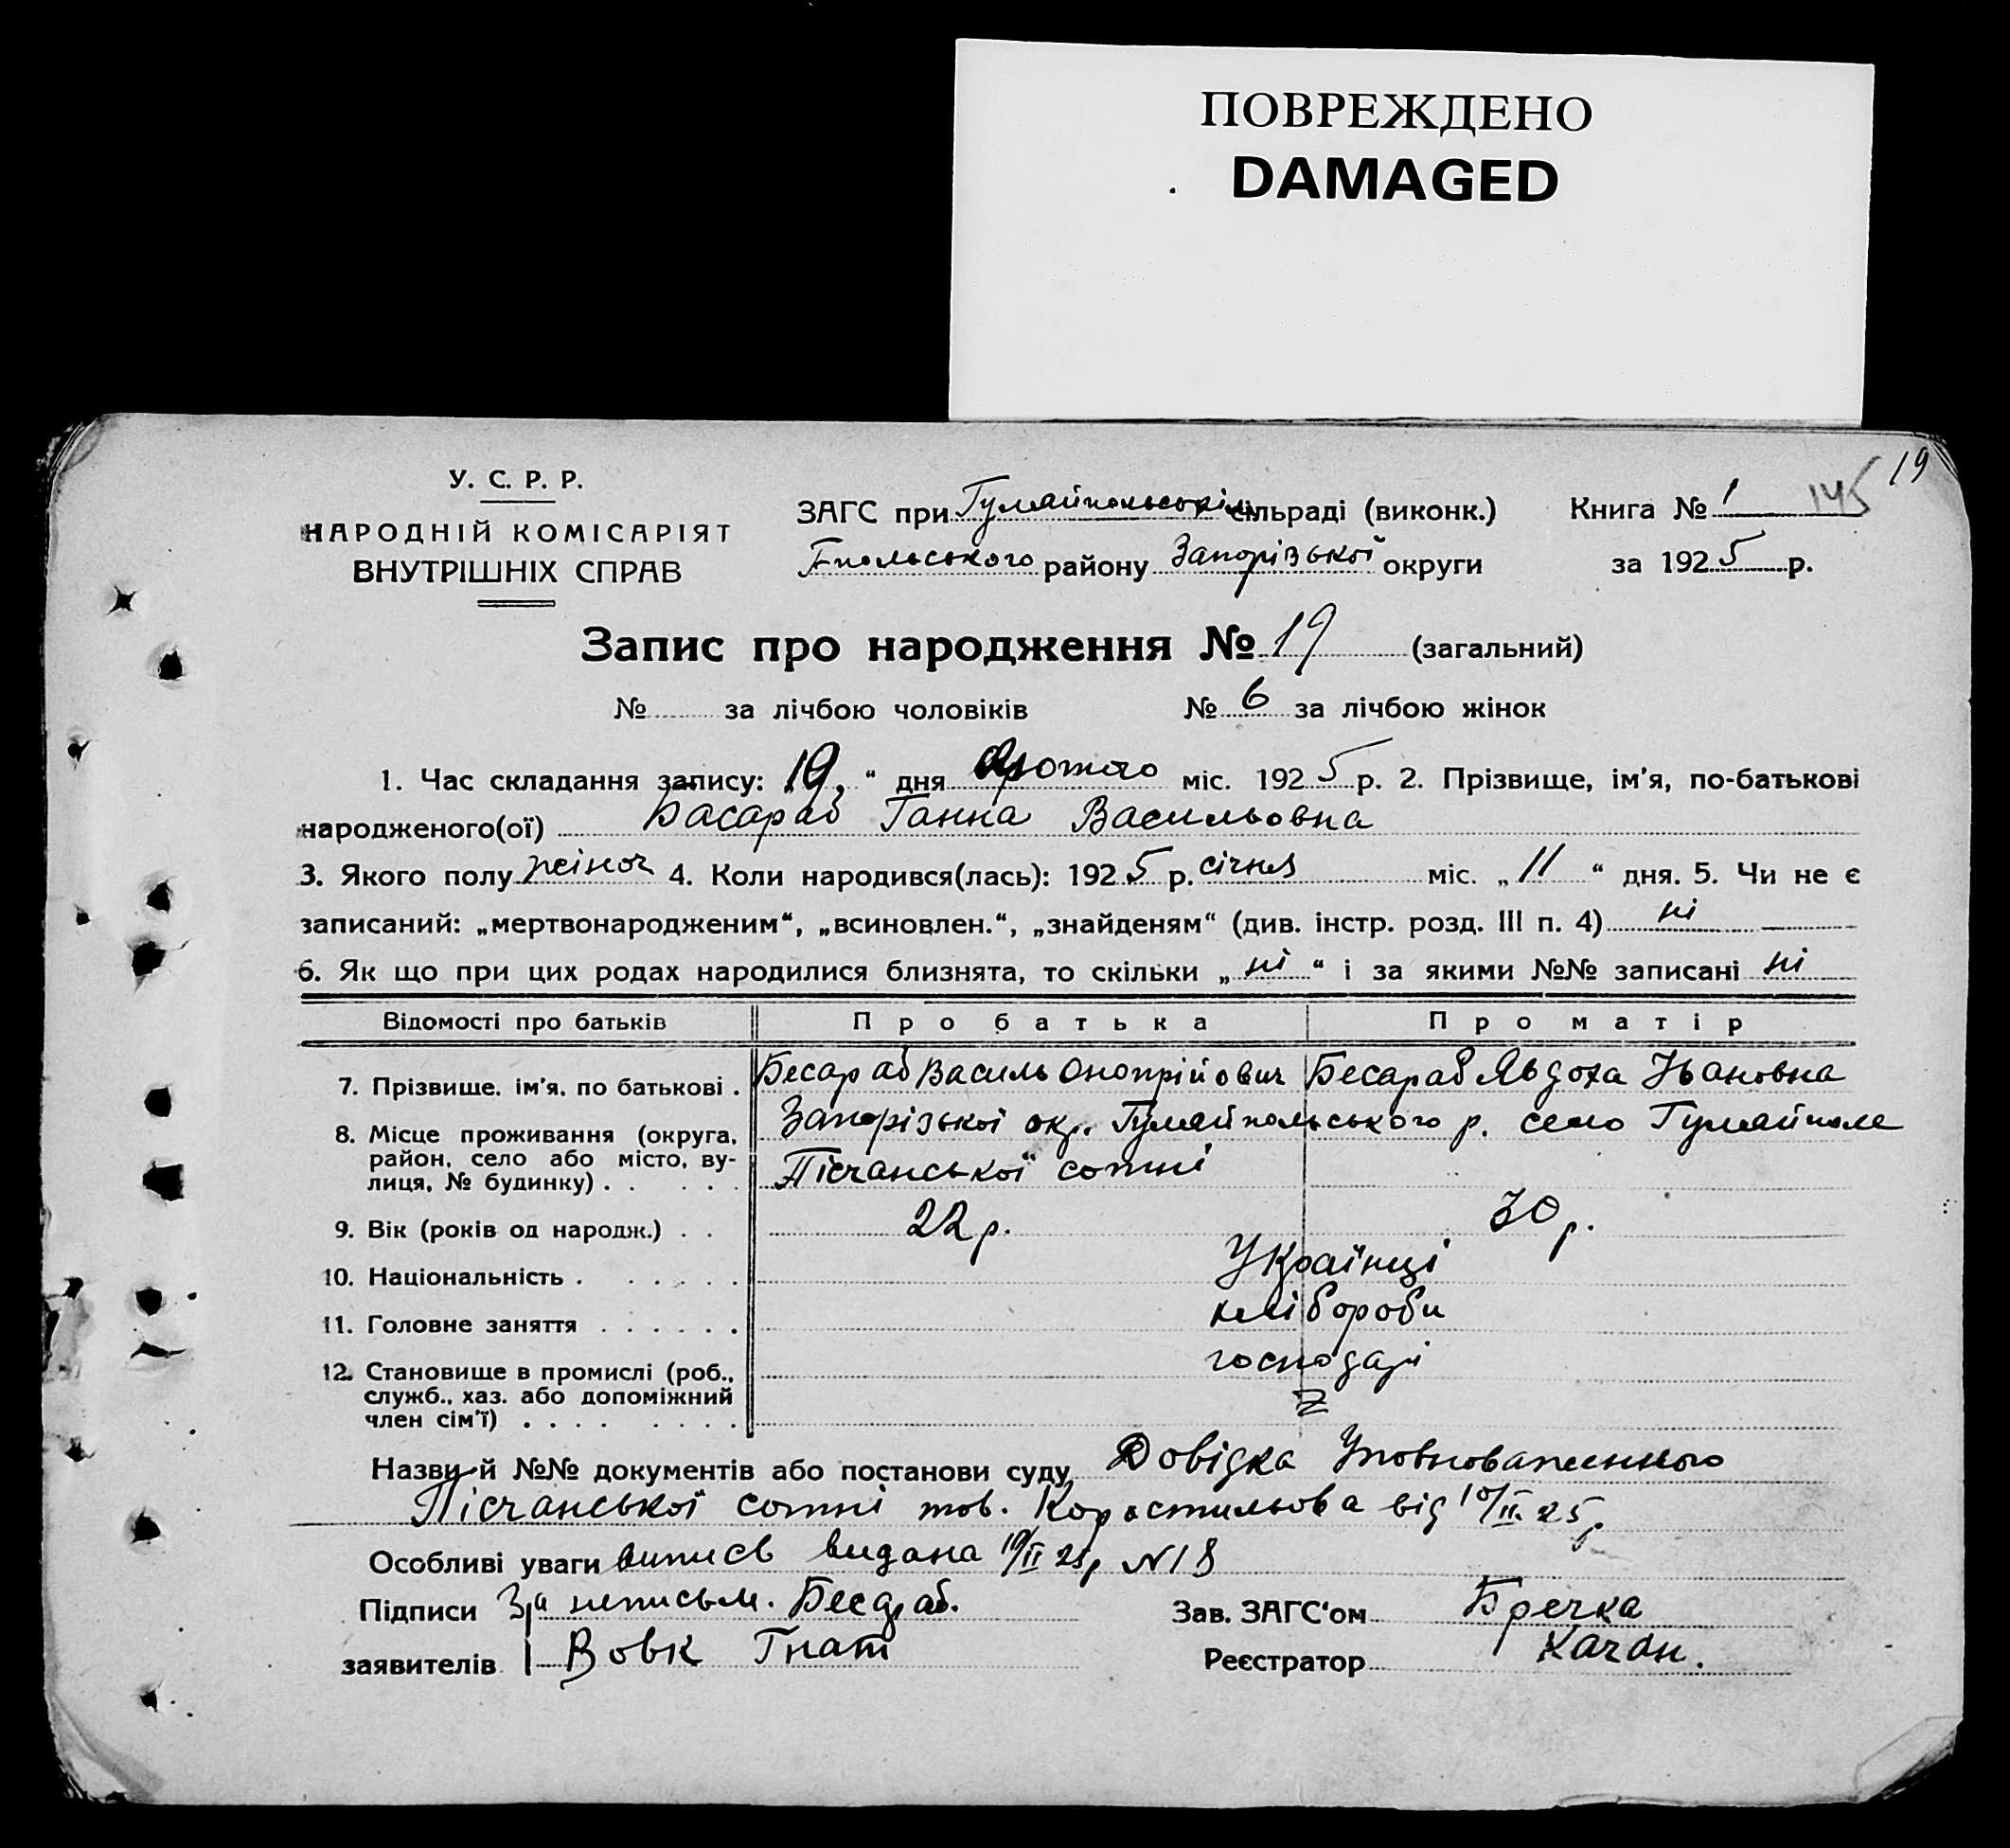 ПОВРЕЖДЕНО
DAMAGED
19
145
У. С. Р. Р.
НАРОДНІЙ КОМІСАРІЯТ
ВНУТРІШНІХ СПРАВ
ЗАГС при Гуляйпольській сільраді (виконк.)
Г-польського району Запорізької округи
Книга № 1
за 1925 р.
Запис про народження № 19 (загальний)
№ за лічбою чоловіків № 6 за лічбою жінок
1. Час складання запису: „19“ дня лютого міс. 1925 р. 2. Прізвище, ім'я, по-батькові
народженого(ої) Басараб Ганна Васильовна
3. Якого полу жіноч 4. Коли народився(лась): 1925 р. січня міс. „11“ дня. 5. Чи не є
записаний: „мертвонародженим“, „всиновлен.“, „знайденям“ (див. інстр. розд. III п. 4) ні
6. Як що при цих родах народилися близнята, то скільки „ні“ і за якими №№ записані ні
Відомості про батьків Про батька Про матір
7. Прізвище, ім'я, по батькові . Бесараб Василь Онопрійович Бесараб Явдоха Івановна
8. Місце проживання (округа, район, село або місто, вулиця, № будинку) . . . . . Запорізької окр. Гуляйпольського р. село Гуляйполе
Пісчанської сотні
9. Вік (років од народж.) . . 22 р. 30 р.
10. Національність . . . . . . Українці
11. Головне заняття . . . . . . хлібороби
12. Становище в промислі (роб., служб., хаз. або допоміжний член сім'ї) . . . . . . . . господарі
Назви й №№ документів або постанови суду Довідка Уповноваженного
Пісчанської сотні тов. Коростильова від 10/II 25 р.
Особливі уваги випись видана 19/II 25 р N 18
Підписи За неписьм. Бесараб.
заявителів Вовк Гнат
Зав. ЗАГС'ом Бречка
Реєстратор Качан.